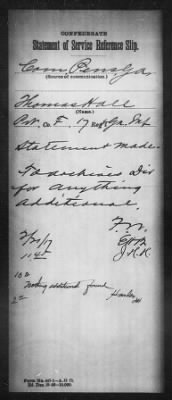 CONFEDERATE
Statement of Service Reference Slip.
Com. Pens. Ga.
(Source of communication.)
Thomas Hall
(Name.)
Pvt. Co. F. 17 Reg't Ga Inf
Statement made.
To archives Div
for anything
additional.
2/21/7
1145
J.H.R.
102
Nothing additional found